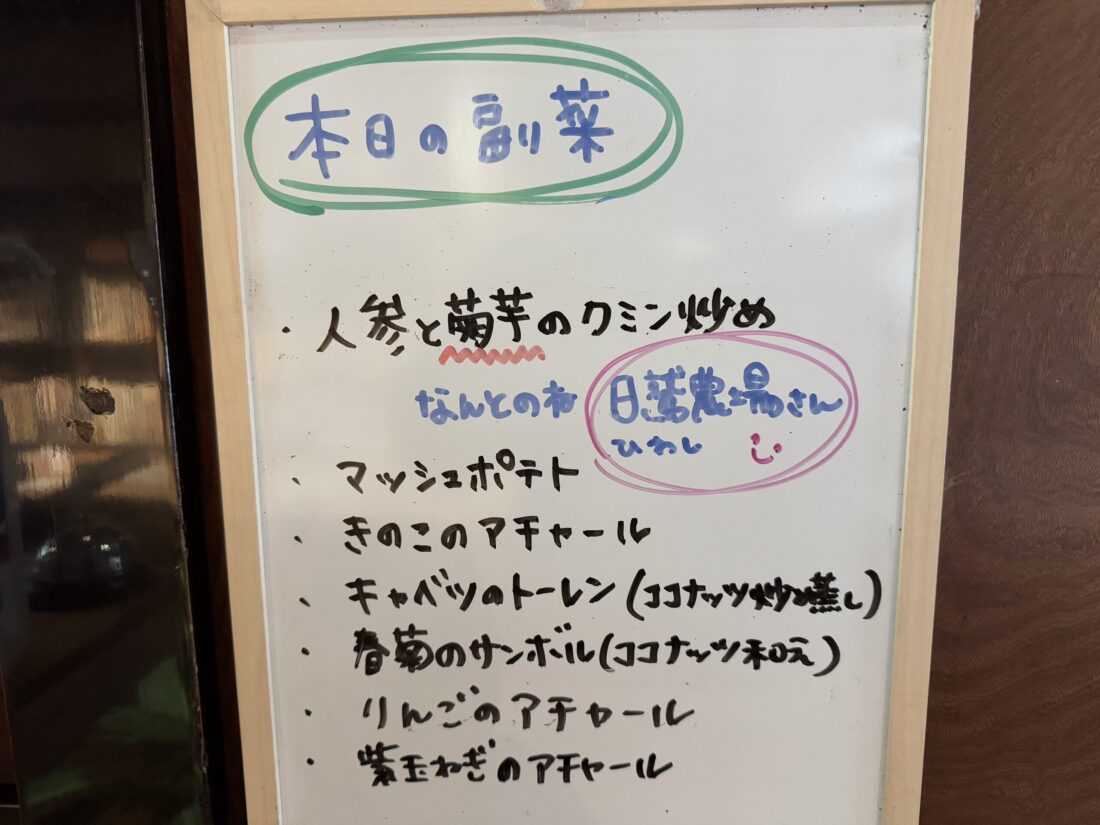 本日の副菜
・人参と菊芋のクミン炒め
なんとのね 日鷲農場さん
ひわし
、マッシュポテト
、きのこのアチャール
、キャベツのトーレン(ココナッツ炒め蒸し)
・春菊のサンボル(ココナッツ和え)
・りんごのアチャール
・紫玉ねぎのアチャール